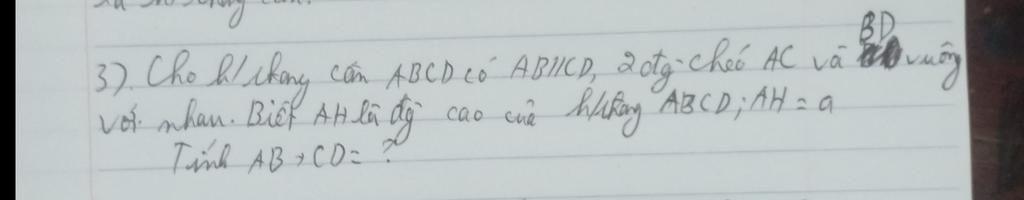 3). Cho h/thang cân ABCD có AB//CD, 2 đtg chéo AC và BD vuông
với nhau. Biết AH là đg cao của h/thang ABCD; AH = a
Tính AB + CD = ?